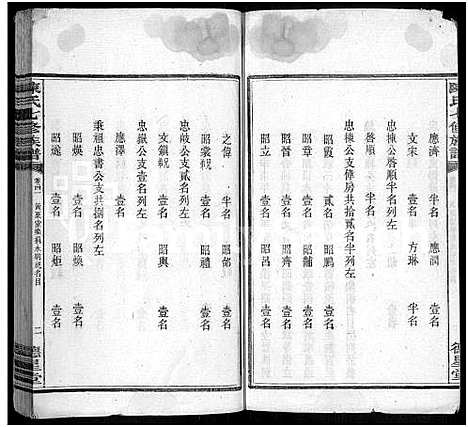 陳氏七修族譜
應濟 半名 應潤 壹名
文宋 壹名 方琳 半名
忠棟公啓順房列左
啓順 半名
忠棟公支偉房共拾貳名列左
昭霞 貳名 昭鵬 壹名
昭章 壹名 昭輔 壹名
昭晉 壹名 昭齊 壹名
昭立 壹名 昭呂 壹名
德星堂
之偉 半名 昭郁 半名
昭裳 壹名 昭禮 壹名
忠岐公支貳名列左
文鎮 壹名 昭興 壹名
忠嶽公支壹名列左
應澤 壹名
秉祖忠書公支共捌名列左
昭煥 壹名
昭遜 壹名 昭炬 壹名
陳氏七修族譜
卷四
二
德星堂